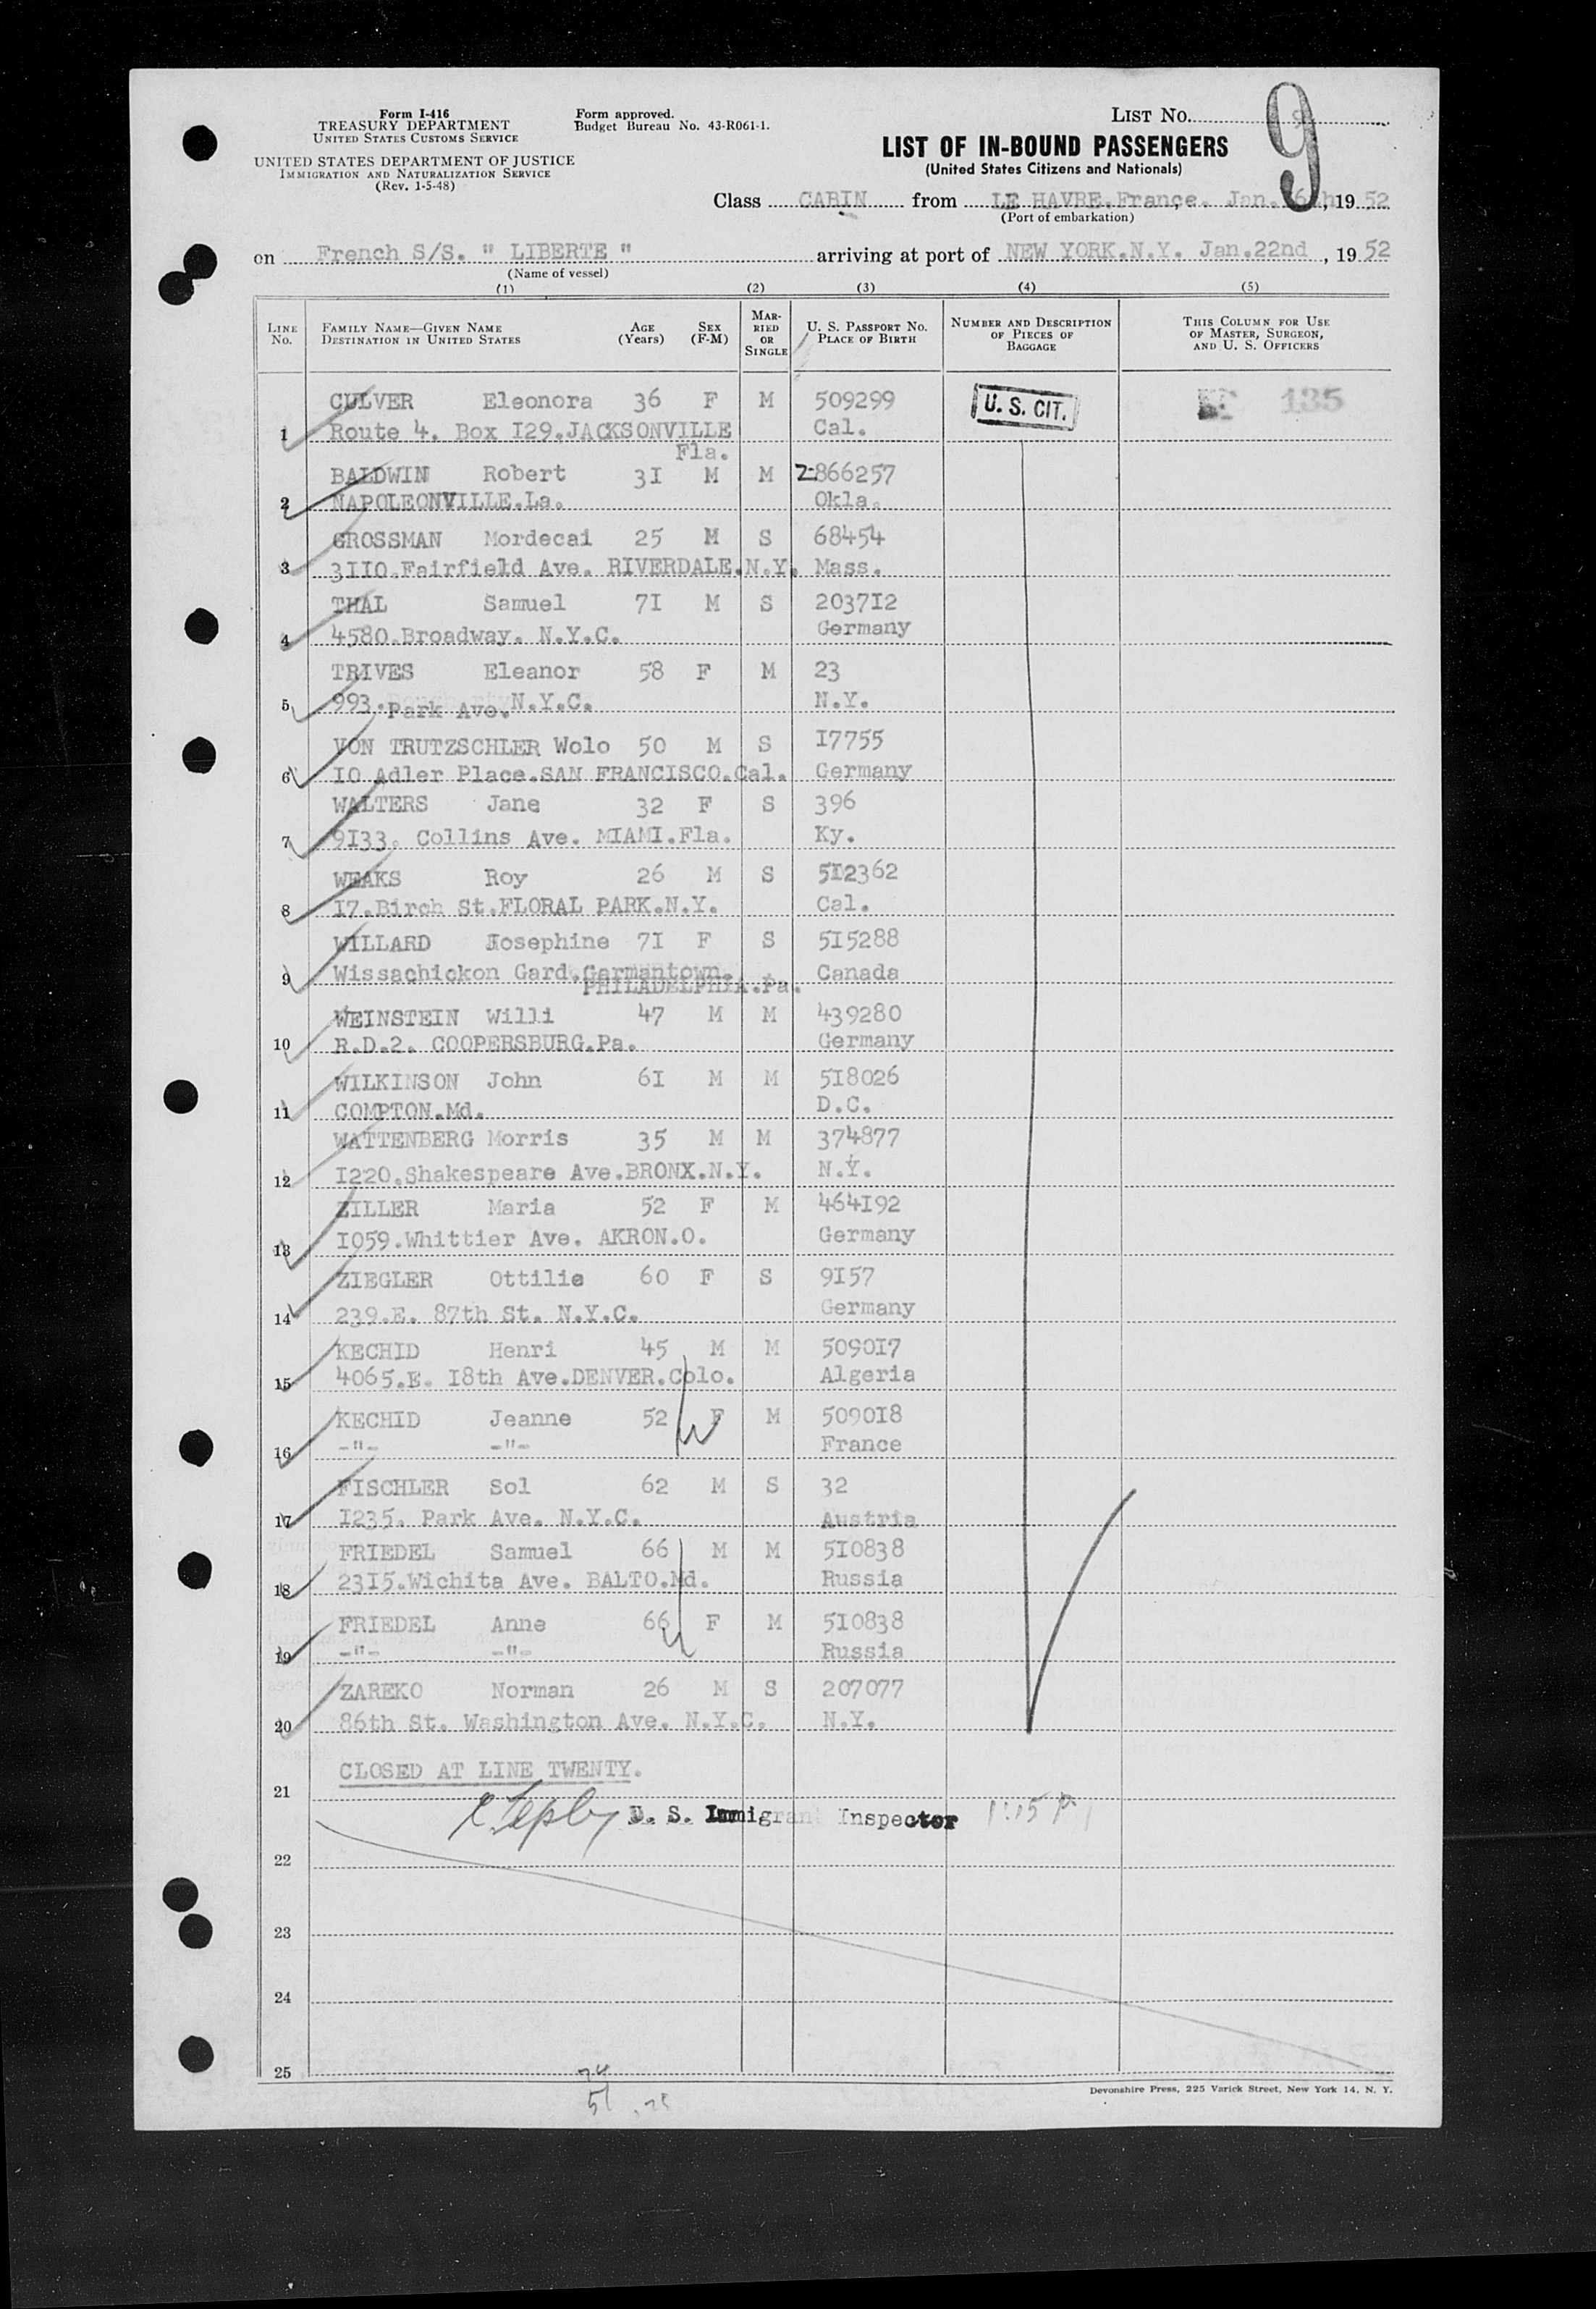 Form I-416
TREASURY DEPARTMENT
UNITED STATES CUSTOMS SERVICE
UNITED STATES DEPARTMENT OF JUSTICE
IMMIGRATION AND NATURALIZATION SERVICE
(Rev. 1-5-48)
Form approved.
Budget Bureau No. 43-R061-1.
LIST No. 9
LIST OF IN-BOUND PASSENGERS
(United States Citizens and Nationals)
Class CABIN from LE HAVRE.France. Jan. 16th, 19 52
(Port of embarkation)
on French S/S. " LIBERTE " arriving at port of NEW YORK.N.Y. Jan.22nd , 19 52
(Name of vessel)
(1) (2) (3) (4) (5)
LINE No.
FAMILY NAME—GIVEN NAME
DESTINATION IN UNITED STATES
AGE (Years)
SEX (F-M)
MARRIED OR SINGLE
U. S. PASSPORT NO.
PLACE OF BIRTH
NUMBER AND DESCRIPTION OF PIECES OF BAGGAGE
THIS COLUMN FOR USE OF MASTER, SURGEON, AND U. S. OFFICERS
CULVER Eleonora 36 F M 509299 U. S. CIT. 135
1 Route 4. Box I29.JACKSONVILLE Cal.
Fla.
BALDWIN Robert 3I M M 2-866257
2 NAPOLEONVILLE.La. Okla.
GROSSMAN Mordecai 25 M S 68454
3 3II0.Fairfield Ave. RIVERDALE.N.Y. Mass.
THAL Samuel 7I M S 2037I2
4 4580.Broadway. N.Y.C. Germany
TRIVES Eleanor 58 F M 23
5 993.Park Ave.N.Y.C. N.Y.
VON TRUTZSCHLER Wolo 50 M S I7755
6 I0 Adler Place.SAN FRANCISCO.Cal. Germany
WALTERS Jane 32 F S 396
7 9I33. Collins Ave. MIAMI.Fla. Ky.
WEAKS Roy 26 M S 5I2362
8 I7.Birch St.FLORAL PARK.N.Y. Cal.
WILLARD Josephine 7I F S 5I5288
9 Wissachickon Gard.Germantown. Canada
PHILADELPHIA.Pa.
WEINSTEIN Willi 47 M M 439280
10 R.D.2. COOPERSBURG.Pa. Germany
WILKINSON John 6I M M 5I8026
11 COMPTON.Md. D.C.
WATTENBERG Morris 35 M M 374877
12 I220.Shakespeare Ave.BRONX.N.Y. N.Y.
ZILLER Maria 52 F M 464I92
13 I059.Whittier Ave. AKRON.O. Germany
ZIEGLER Ottilie 60 F S 9I57
14 239.E. 87th St. N.Y.C. Germany
KECHID Henri 45 M M 5090I7
15 4065.E. I8th Ave.DENVER.Colo. Algeria
KECHID Jeanne 52 F M 5090I8
16 -"- -"- France
FISCHLER Sol 62 M S 32
17 I235. Park Ave. N.Y.C. Austria
FRIEDEL Samuel 66 M M 5I0838
18 23I5.Wichita Ave. BALTO.Md. Russia
FRIEDEL Anne 66 F M 5I0838
19 -"- -"- Russia
ZAREKO Norman 26 M S 207077
20 86th St. Washington Ave. N.Y.C. N.Y.
CLOSED AT LINE TWENTY.
21
U. S. Immigrant Inspector
22
23
24
25
51
Devonshire Press, 225 Varick Street, New York 14, N. Y.